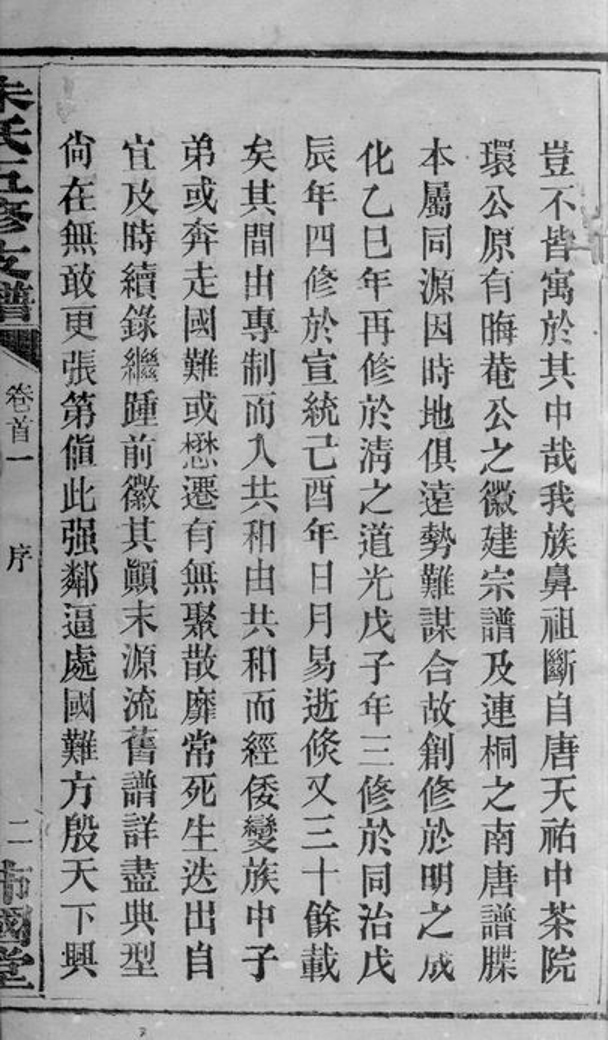 豈不皆寓於其中哉我族鼻祖斷自唐天祐中茶院
環公原有晦菴公之徽建宗譜及連桐之南唐譜牒
本屬同源因時地俱遠勢難謀合故創修於明之成
化乙巳年再修於清之道光戊子年三修於同治戊
辰年四修於宣統己酉年日月易逝倐又三十餘載
矣其間由專制而入共和由共和而經倭變族中子
弟或奔走國難或懋遷有無聚散靡常死生迭出自
宜及時續錄繼踵前徽其顚末源流舊譜詳盡典型
尙在無敢更張第値此强鄰逼處國難方殷天下興
朱氏五修支譜
卷首一
序
二
沛國堂